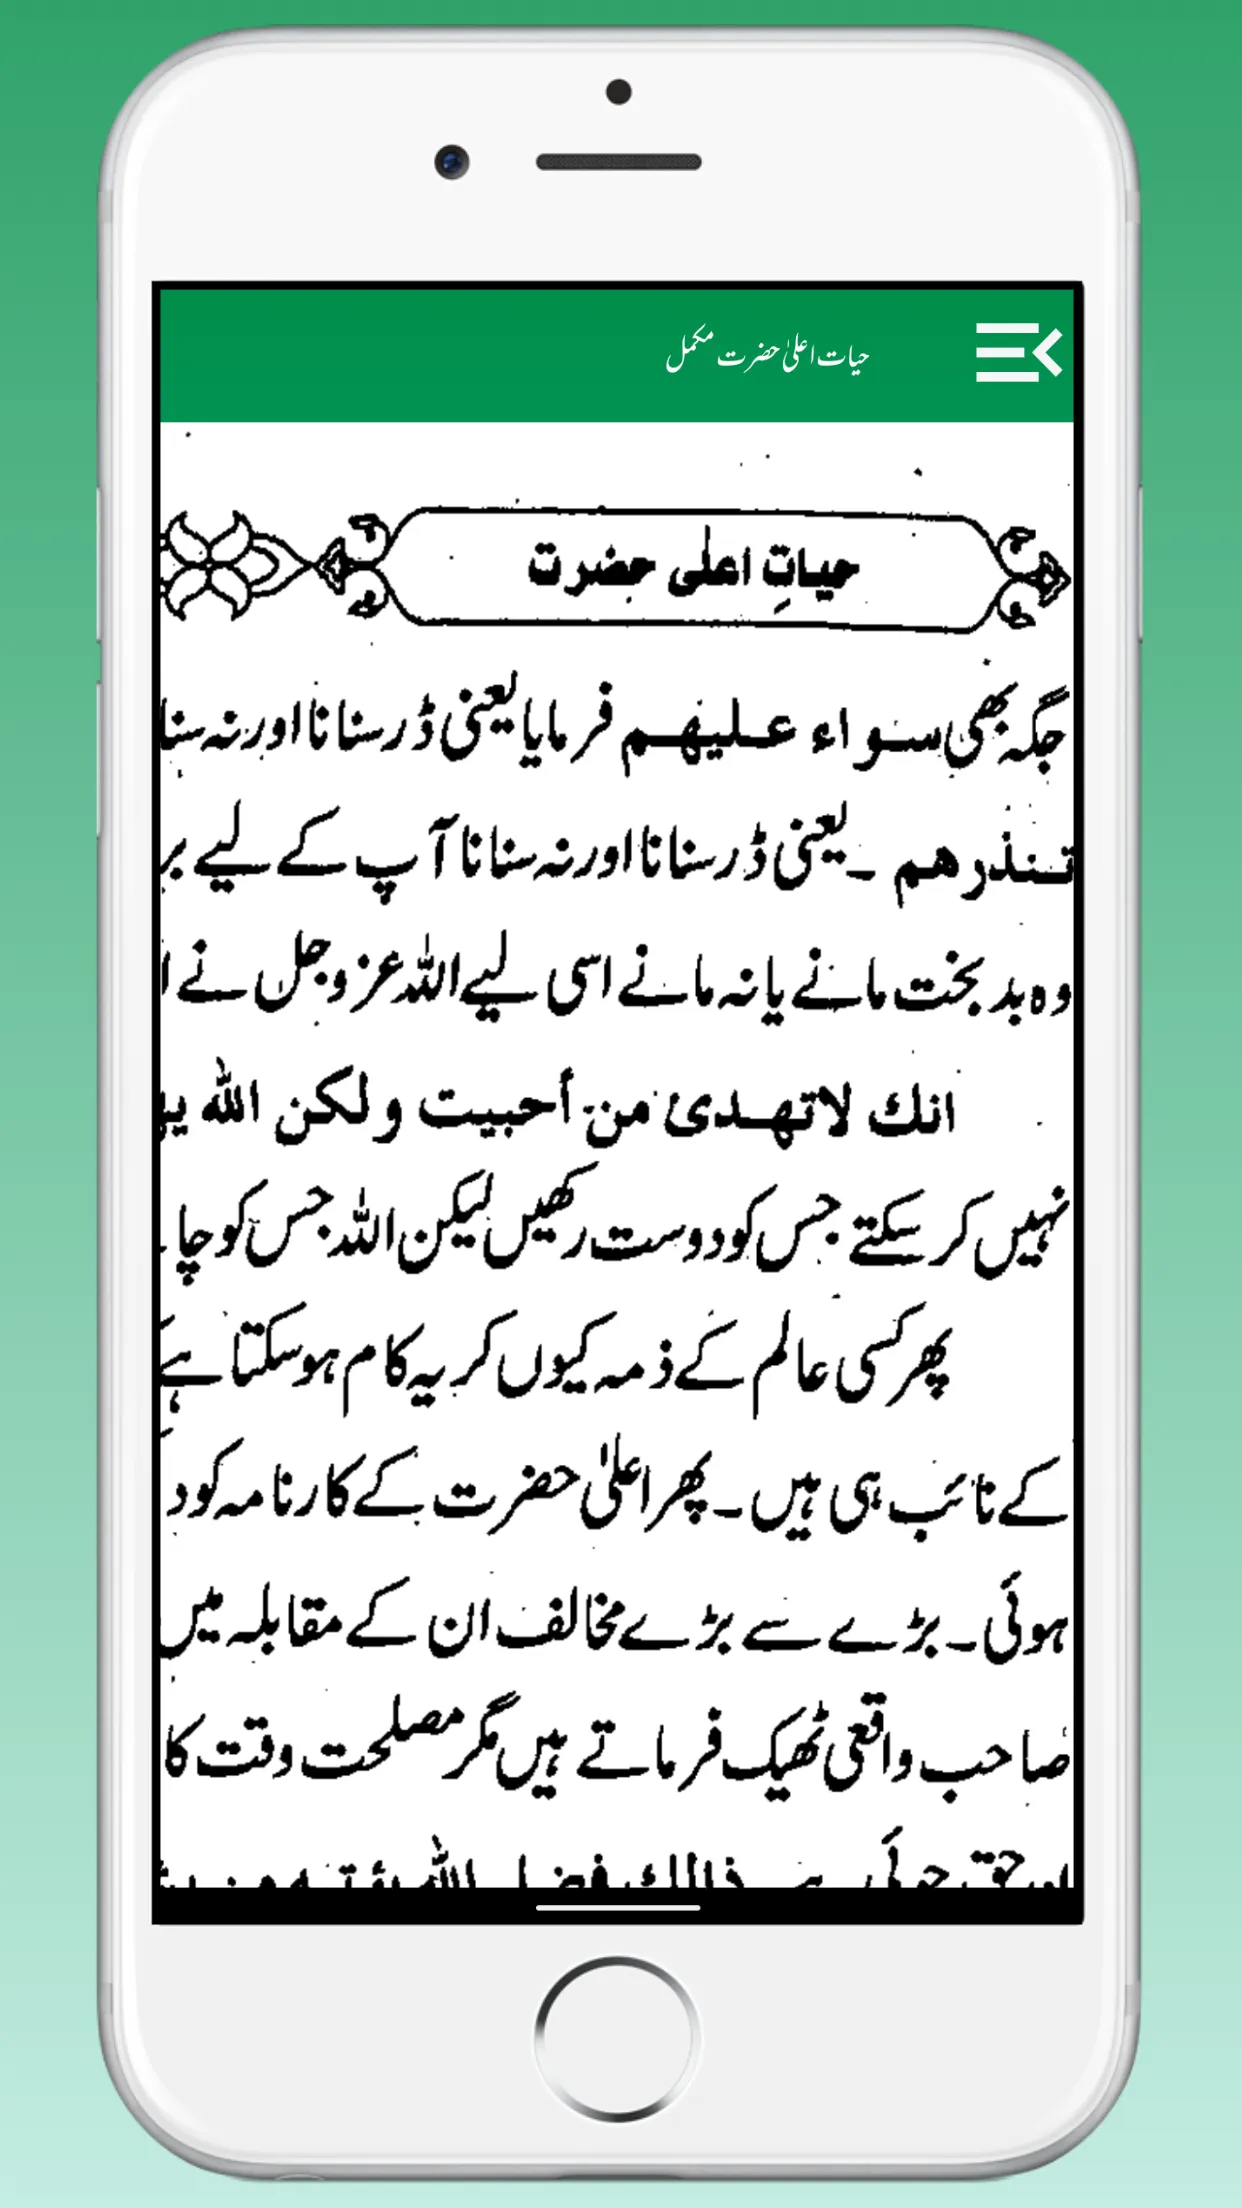 حیات اعلیٰ حضرت مکمل
حیاتِ اعلی حضرت
جگہ بھی سواء علیھم فرمایا یعنی ڈر سنانا اور نہ سنا
تنذرھم ۔ یعنی ڈر سنانا اور نہ سنانا آپ کے لیے بر
وہ بد بخت مانے یا نہ مانے اسی لیے اللہ عز و جل نے ا
انك لاتھدئ من أحبیت و لکن الله یھ
نہیں کر سکتے جس کو دوست رکھیں لیکن اللہ جس کو چا
پھر کسی عالم کے ذمہ کیوں کر یہ کام ہو سکتا ہے
کے نائب ہی ہیں ۔ پھر اعلیٰ حضرت کے کارنامہ کو د
ہوئی ۔ بڑے سے بڑے مخالف ان کے مقابلہ میں
صاحب واقعی ٹھیک فرماتے ہیں مگر مصلحت وقت کا
اور حق جوئی ہے ذالك فضل الله یؤتیه من یش